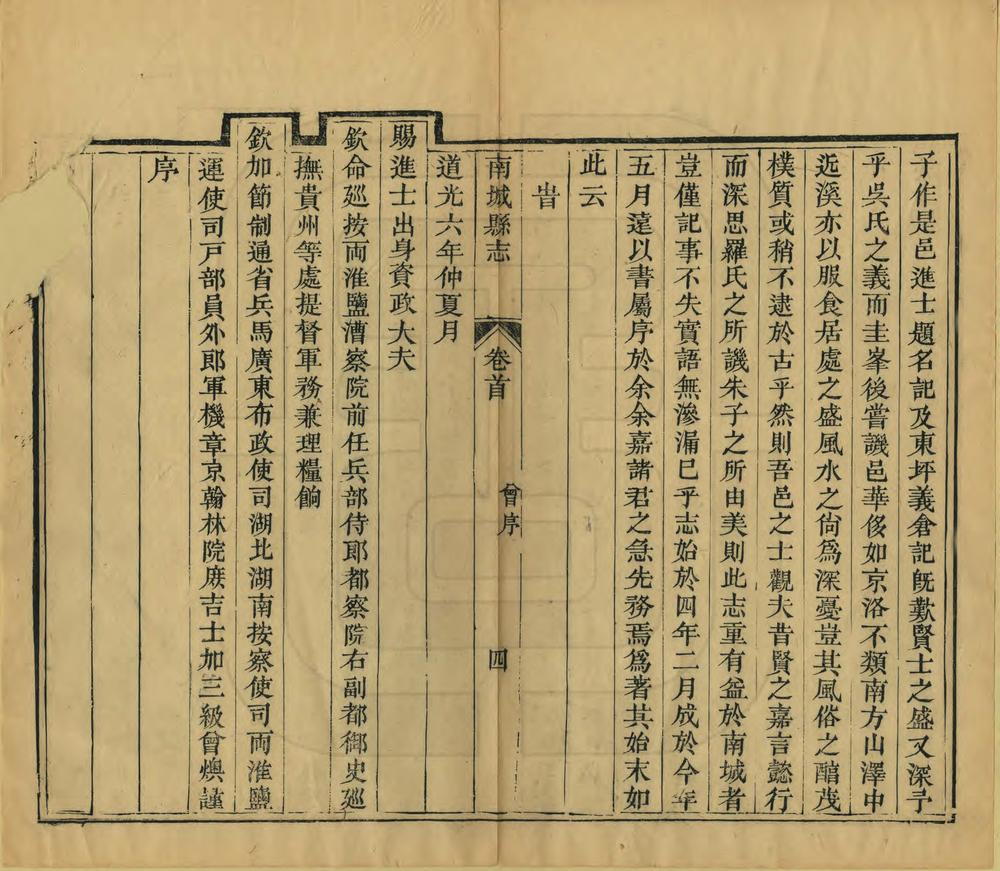 子作是邑進士題名記及東坪義倉記既歎賢士之盛又深予
乎吳氏之義而圭峯後嘗譏邑華侈如京洛不類南方山澤中
近溪亦以服食居處之盛風水之尙爲深憂豈其風俗之醕茂
樸質或稍不逮於古乎然則吾邑之士觀夫昔賢之嘉言懿行
而深思羅氏之所譏朱子之所由美則此志重有益於南城者
豈僅記事不失實語無滲漏已乎志始於四年二月成於今年
五月遠以書屬序於余余嘉諸君之急先務焉爲著其始末如
此云
旹
南城縣志
卷首
曾序
四
道光六年仲夏月
賜進士出身資政大夫
欽命巡按两淮鹽漕察院前任兵部侍郎都察院右副都御史廵
撫貴州等處提督軍務兼理糧餉
欽加節制通省兵馬廣東布政使司湖北湖南按察使司兩淮鹽
運使司戸部員外郎軍機章京翰林院庶吉士加三級曾燠謹
序